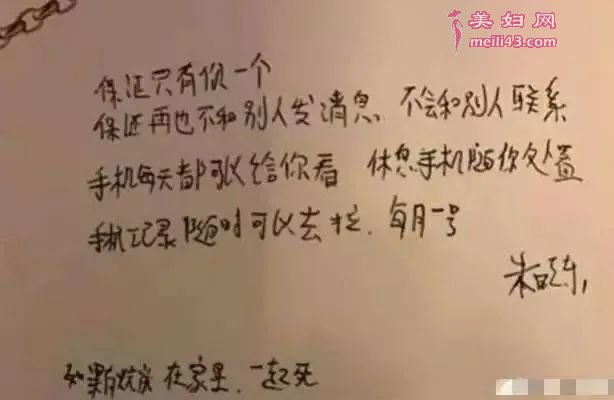 美妇网
meili43.com
保证只有你一个
保证再也不和别人发消息 不会和别人联系
手机每天都可以给你看 休息手机随你处置
手机记录随时可以去拉．每月一号
朱晓东
如果有烧炭 在家里．一起死